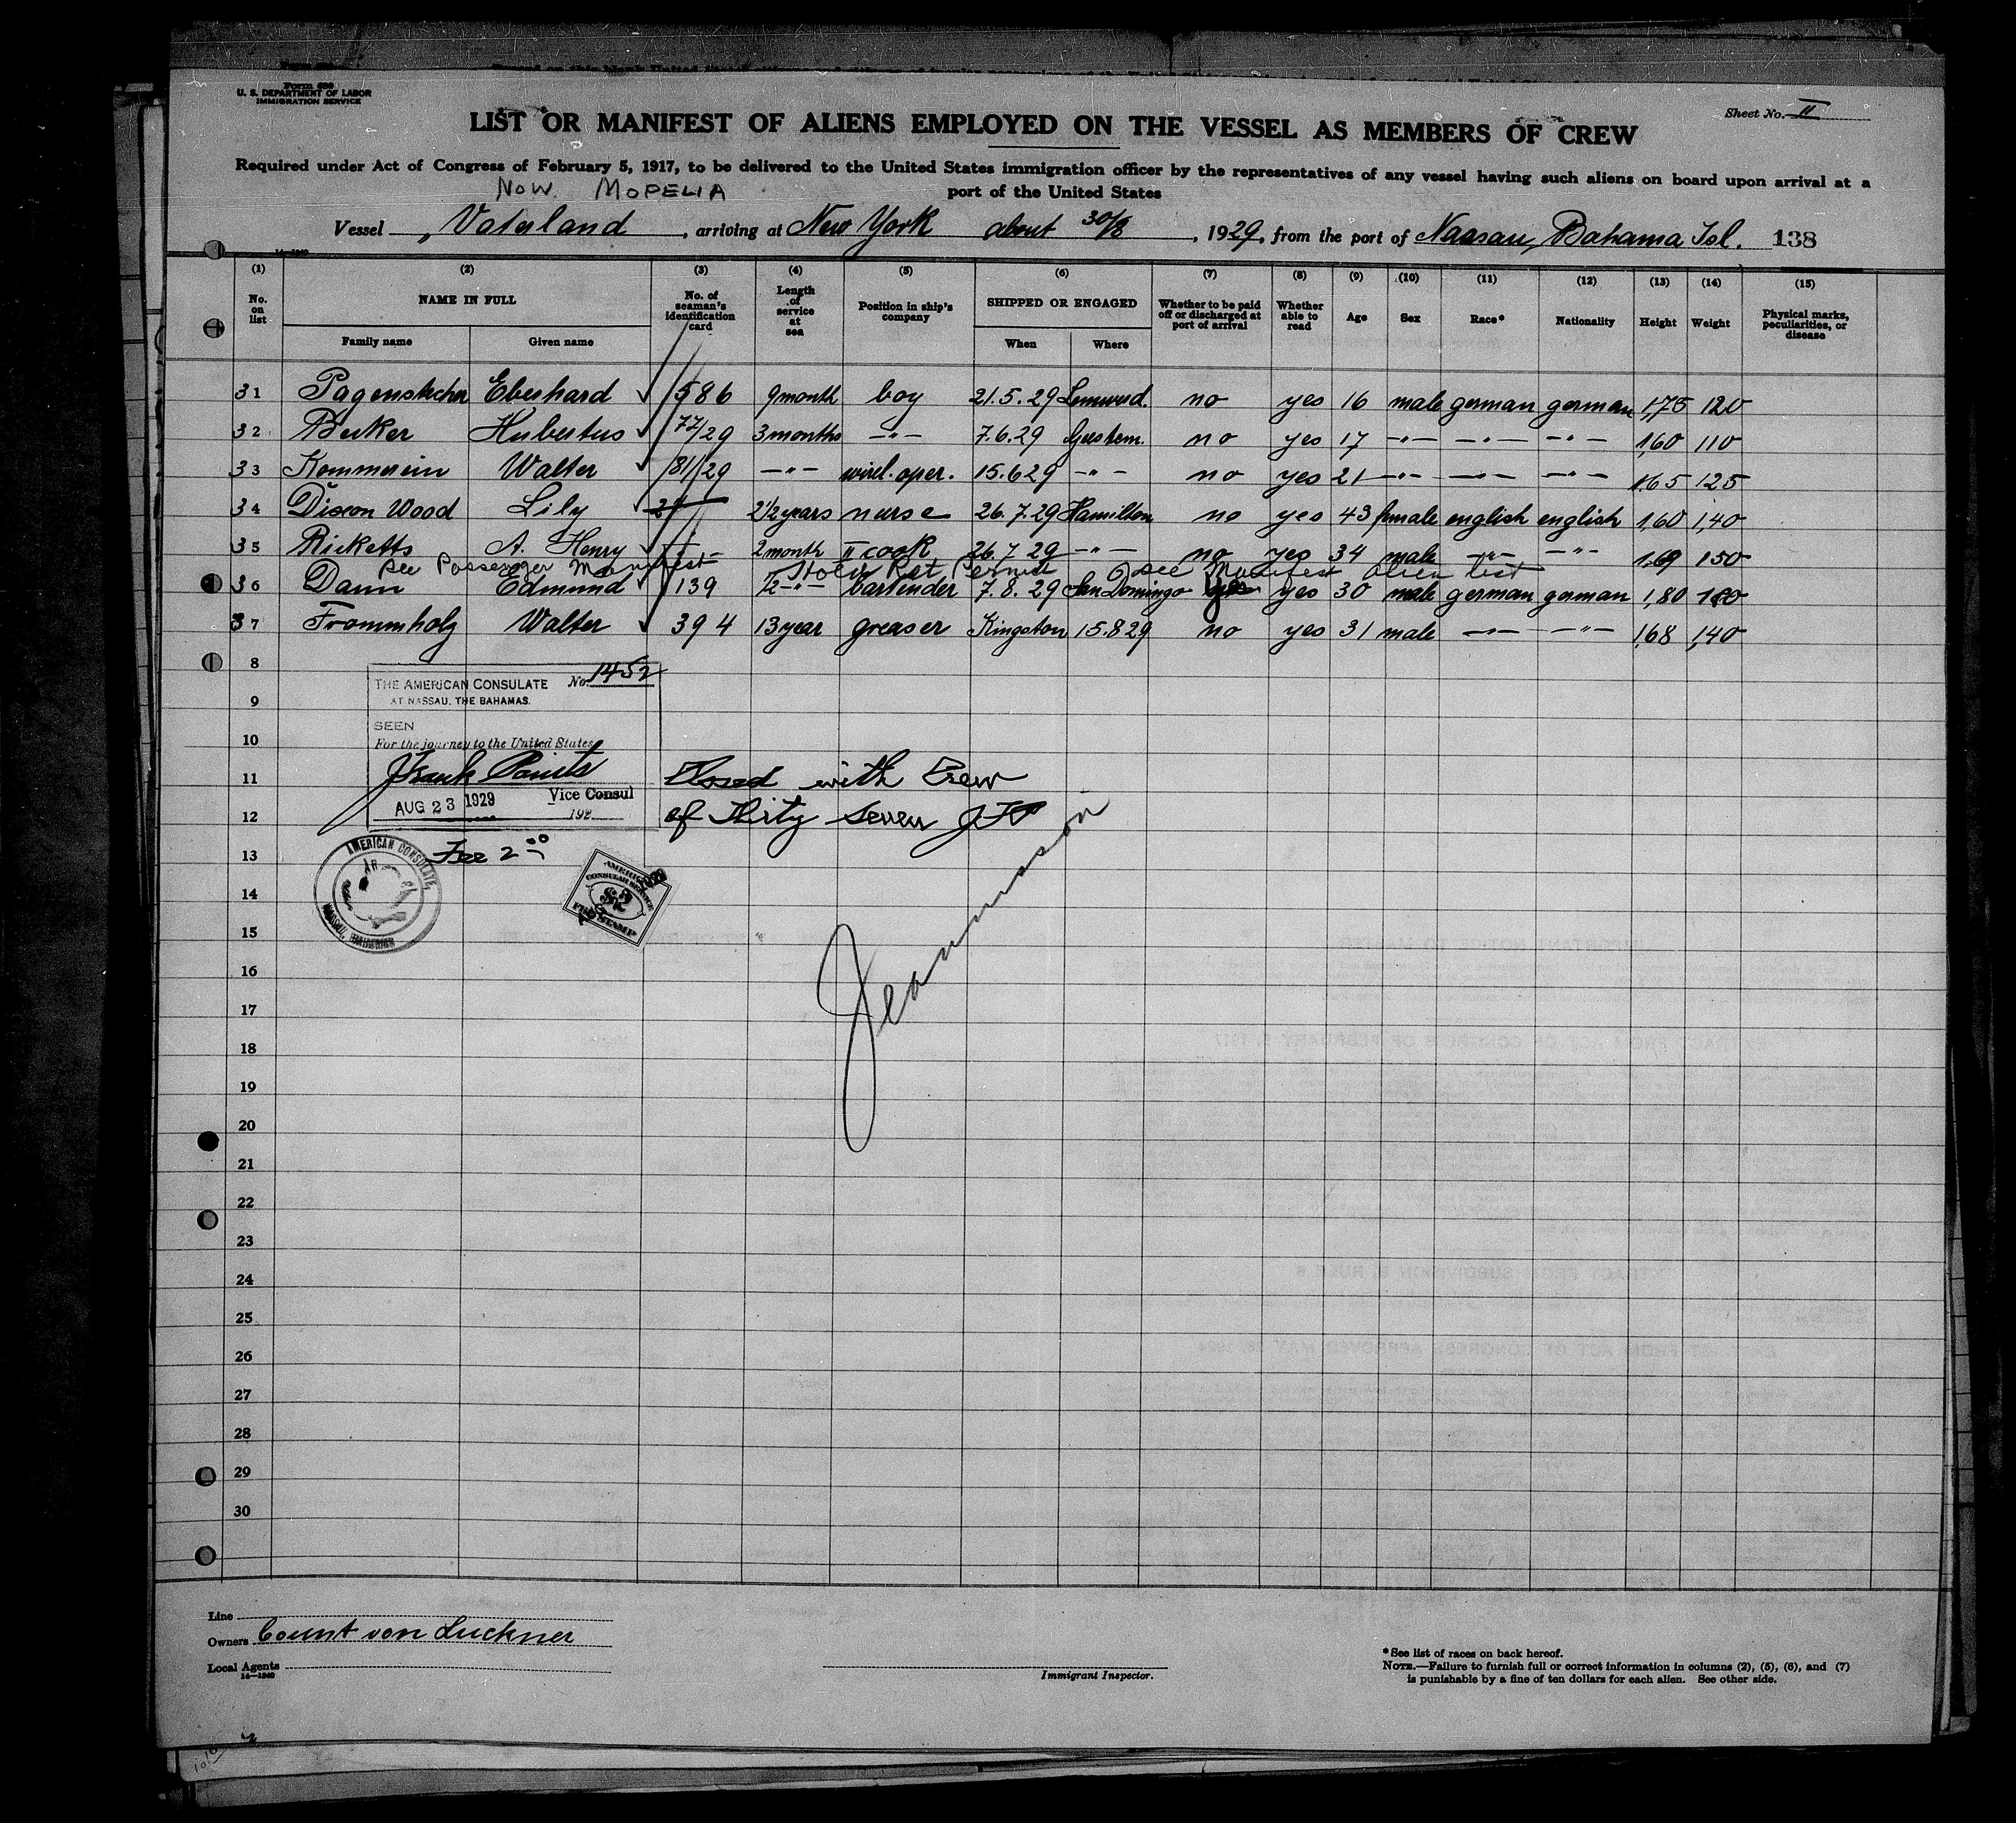 Form 680
U. S. DEPARTMENT OF LABOR
IMMIGRATION SERVICE
Sheet No. II
LIST OR MANIFEST OF ALIENS EMPLOYED ON THE VESSEL AS MEMBERS OF CREW
Required under Act of Congress of February 5, 1917, to be delivered to the United States immigration officer by the representatives of any vessel having such aliens on board upon arrival at a
port of the United States
NOW. MOPELIA
Vessel Vaterland, arriving at New York about 30/8, 1929, from the port of Nassau, Bahama Isl. 138
(1) (2) (3) (4) (5) (6) (7) (8) (9) (10) (11) (12) (13) (14) (15)
No. on list NAME IN FULL No. of seaman's identification card Length of service at sea Position in ship's company SHIPPED OR ENGAGED Whether to be paid off or discharged at port of arrival Whether able to read Age Sex Race* Nationality Height Weight Physical marks, peculiarities, or disease
Family name Given name When Where
31 Pagenstecher Eberhard 586 9 month boy 21.5.29 Lemwerd. no yes 16 male german german 1,75 120
32 Becker Hubertus 77/29 3 months -"- 7.6.29 Geestem. no yes 17 -"- -"- -"- 1,60 110
33 Kommerein Walter 81/29 -"- wirel. oper. 15.6.29 -"- no yes 21 -"- -"- -"- 1,65 125
34 Dixon Wood Lily 2 1/2 years nurse 26.7.29 Hamilton no yes 43 female english english 1,60 1,40
35 Ricketts A. Henry - 2 month II cook 26.7.29 -"- no yes 34 male -"- -"- 1,69 150
See Passenger Manifest Holds Ret. Permit See Manifest alien list
36 Dann Edmund 139 1/2 -"- bartender 7.8.29 San Domingo yes yes 30 male german german 1,80 180
37 Frommholz Walter 394 13 year greaser Kingston 15.8.29 no yes 31 male -"- -"- 1,68 1,40
8
THE AMERICAN CONSULATE No. 1452
AT NASSAU, THE BAHAMAS.
9
SEEN
10
For the journey to the United States
11
Vice Consul
AUG 23 1929
192
Closed with Crew
of Thirty Seven
12
Fee 2.00
13
AMERICAN CONSULATE, NASSAU, BAHAMAS
AMERICAN CONSULAR SERVICE $2 FEE STAMP
14
15
16
17
18
19
20
21
22
23
24
25
26
27
28
29
30
Line
Owners Count von Luckner
Local Agents
14—1240
Immigrant Inspector.
*See list of races on back hereof.
NOTE.—Failure to furnish full or correct information in columns (2), (5), (6), and (7)
is punishable by a fine of ten dollars for each alien. See other side.